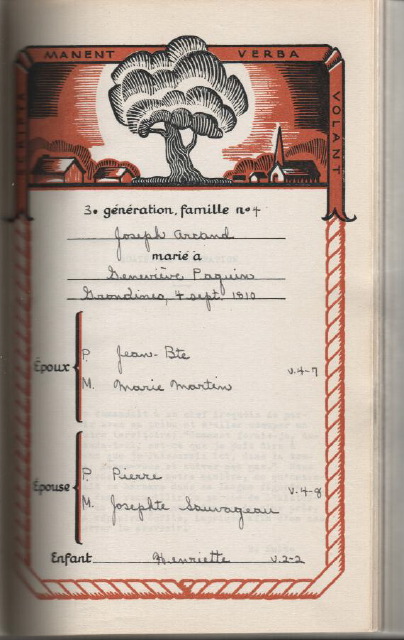 SCRIPTA MANENT VERBA VOLANT
3e génération, famille nº 4
Joseph Arcand
marié à
Geneviève Paquin
Grondines, 4 sept. 1810
Époux
P. Jean-Bte
M. Marie Martin
v.4-7
Épouse
P. Pierre
M. Josephte Sauvageau
v.4-8
Enfant Henriette v.2-2